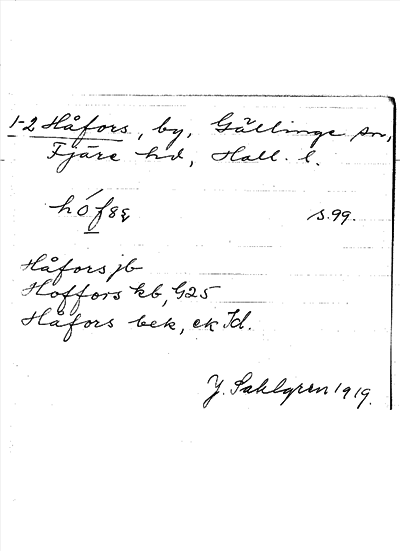 1-2 Håfors, by, Gällinge sn,
Fjäre hd, Hall. l.
s.99.
Håfors jb
Hoffors kb, G25
Håfors bek, ek Id.
J. Sahlgren 1919.